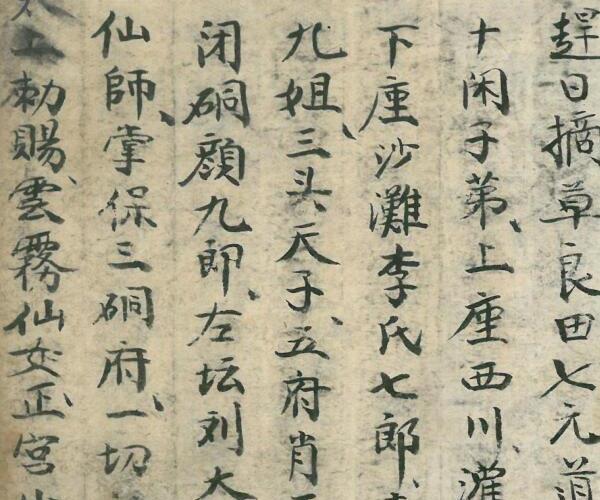 趕日摘草良田七元道
十闲子第、上座西川、灌
下座沙灘李氏七郎、
九姐、三头天子、五府肖
闭硐顔九郎、左坛刘大
仙師、掌保三硐府、一切
上勅賜、雲霧仙女正宫